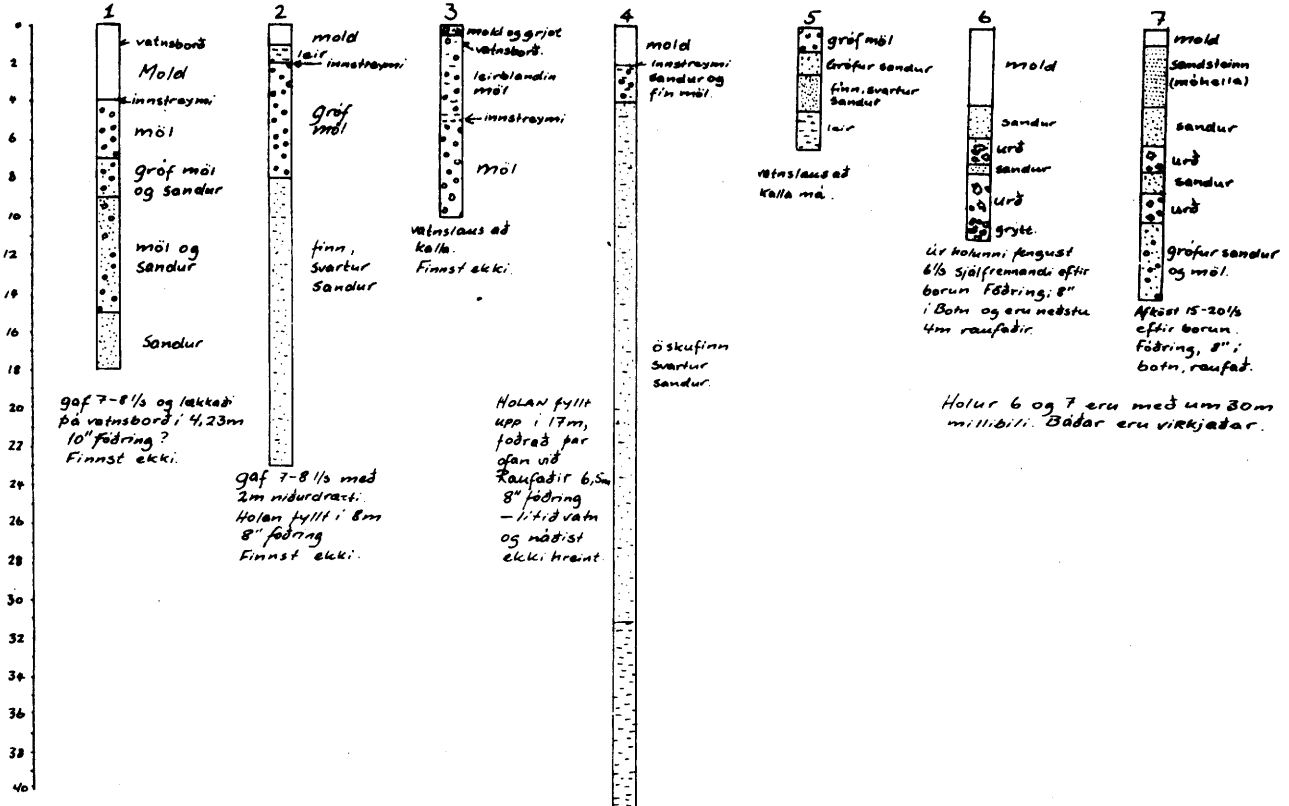 1
vatnsborð
Mold
innstreymi
möl
gróf möl
og sandur
möl og
sandur
Sandur
gaf 7-8 l/s og lækkaði
þá vatnsborð í 4,23m
10" fóðring?
Finnst ekki.
2
mold
leir
innstreymi
gróf
möl
fínn,
svartur
sandur
gaf 7-8 l/s með
2m niðurdrætti.
Holan fyllt í 8m
8" fóðring
Finnst ekki.
3
mold og grjót
vatnsborð.
leirblandin
möl
innstreymi
möl
vatnslaus að
kalla.
Finnst ekki.
4
mold
innstreymi
sandur og
fín möl.
öskufínn
svartur
sandur.
HOLAN fyllt
upp í 17m,
fóðrað þar
ofan við
Raufaðir 6,5m
8" fóðring
– lítið vatn
og náðist
ekki hreint.
5
gróf möl
Grófur sandur
fínn, svartur
sandur
leir
vatnslaus að
kalla má.
6
mold
sandur
urð
sandur
urð
grýtt.
Úr holunni fengust
6 l/s sjálfrennandi eftir
borun Fóðring; 8"
í Botn og eru neðstu
4m raufaðir.
7
mold
Sandsteinn
(móhella)
sandur
urð
sandur
urð
grófur sandur
og möl.
Afköst 15-20 l/s
eftir borun.
Fóðring, 8" í
botn, raufað.
Holur 6 og 7 eru með um 30m
millibili. Báðar eru virkjaðar.
0
2
4
6
8
10
12
14
16
18
20
22
24
26
28
30
32
34
36
38
40